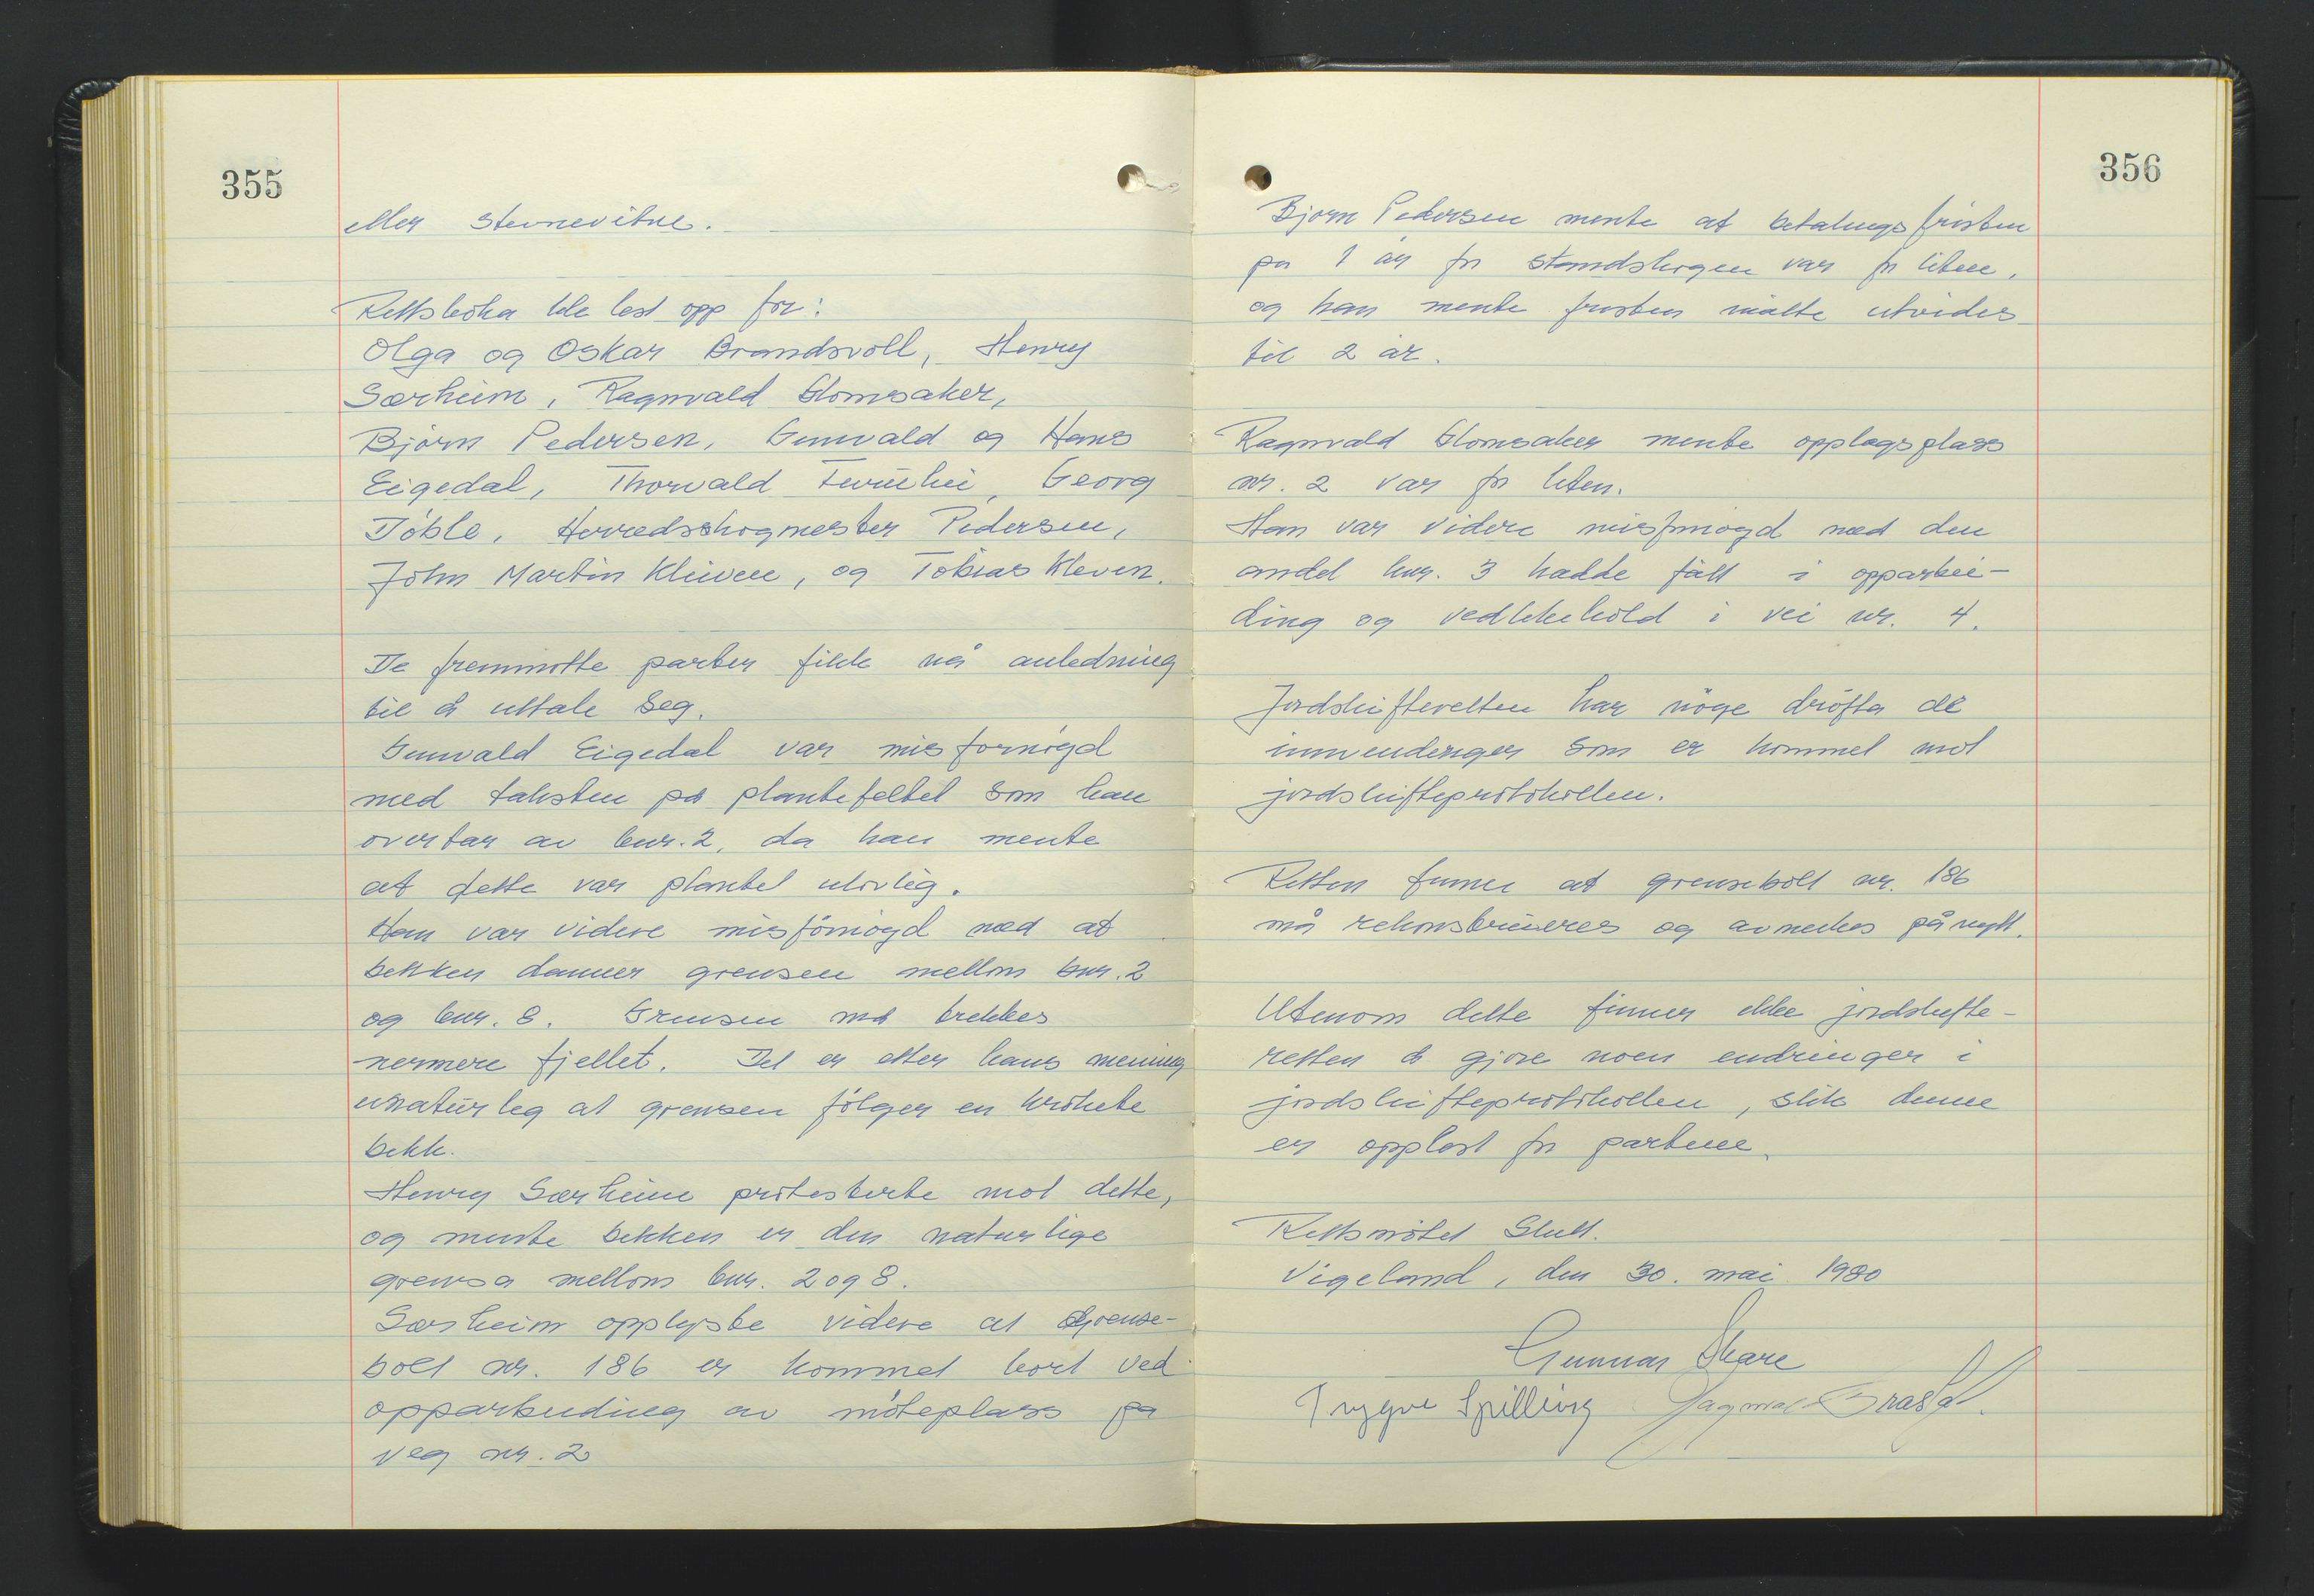 355
eller stevnevitne.
Rettsboka ble lest opp for:
Olga og Oskar Brandsvoll, Henry
Særheim, Ragnvald Glomsaker,
Bjørn Pedersen, Gunvald og Hans
Eigedal, Thorvald Furuhei, Georg
Tøble, Herredsskogmester Pedersen,
John Martin Kleiven, og Tobias Kleven.
De fremmøtte parter fikk nå anledning
til å uttale seg.
Gunvald Eigedal var misfornøgd
med taksten på plantefeltet som han
overtar av bnr. 2, da han mente
at dette var plantet ulovleg.
Han var videre misfornøgd med at
bekken danner grensen mellom bnr. 2
og bnr. 8. Grensen må trekkes
nermere fjellet. Det er etter hans mening
unaturleg at grensen følger en krokete
bekk.
Henry Særheim protesterte mot dette,
og mente bekken er den naturlige
grensa mellom bnr. 2 og 8.
Særheim opplyste videre at grense-
bolt nr. 186 er kommet bort ved
opparbeiding av møteplass på
veg nr. 2
356
Bjørn Pedersen mente at betalingsfristen
på 1 år for standskogen var for liten,
og han mente fristen måtte utvides
til 2 år.
Ragnvald Glomsaker mente opplagsplass
nr. 2 var for liten.
Han var videre misfornøgd med den
andel bnr. 3 hadde fått i opparbei-
ding og vedlikehold i vei nr. 4.
Jordskifteretten har nøye drøfta de
innvendinger som er kommet mot
jordskifteprotokollen.
Retten finner at grensebolt nr. 186
må rekonstrueres og avmerkes på nytt.
Utenom dette finner ikke jordskifte-
retten å gjøre noen endringer i
jordskifteprotokollen, slik denne
er opplest for partene.
Rettsmøtet slutt.
Vigeland, den 30. mai 1980
Gunnar Skare
Trygve Spilling